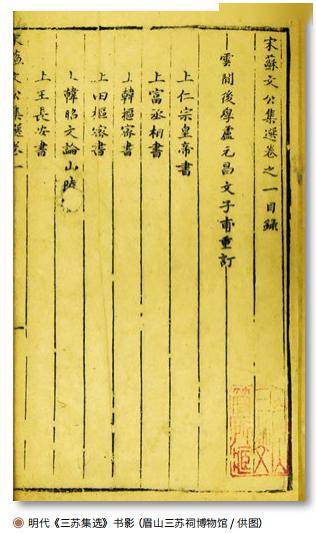 宋蘇文公集選卷之一目錄
雲間後學盧元昌文子甫重訂
上仁宗皇帝書
上富丞相書
上韓樞密書
上田樞密書
上韓昭文論山陵
上王長安書
宋蘇文公集選卷一
明代《三苏集选》书影 (眉山三苏祠博物馆 / 供图)